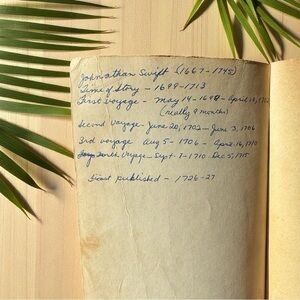 Johnathan Swift (1667-1745)
Time of Story - 1699-1713
First voyage - May 14-1699 - April 13, 1702
(really 9 months)
Second Voyage - June 20, 1702 - June 3, 1706
3rd voyage Aug 5 - 1706 - April 16, 1710
Fourth Voyage - Sept. 7-1710 Dec 5, 1715
First published - 1726-27